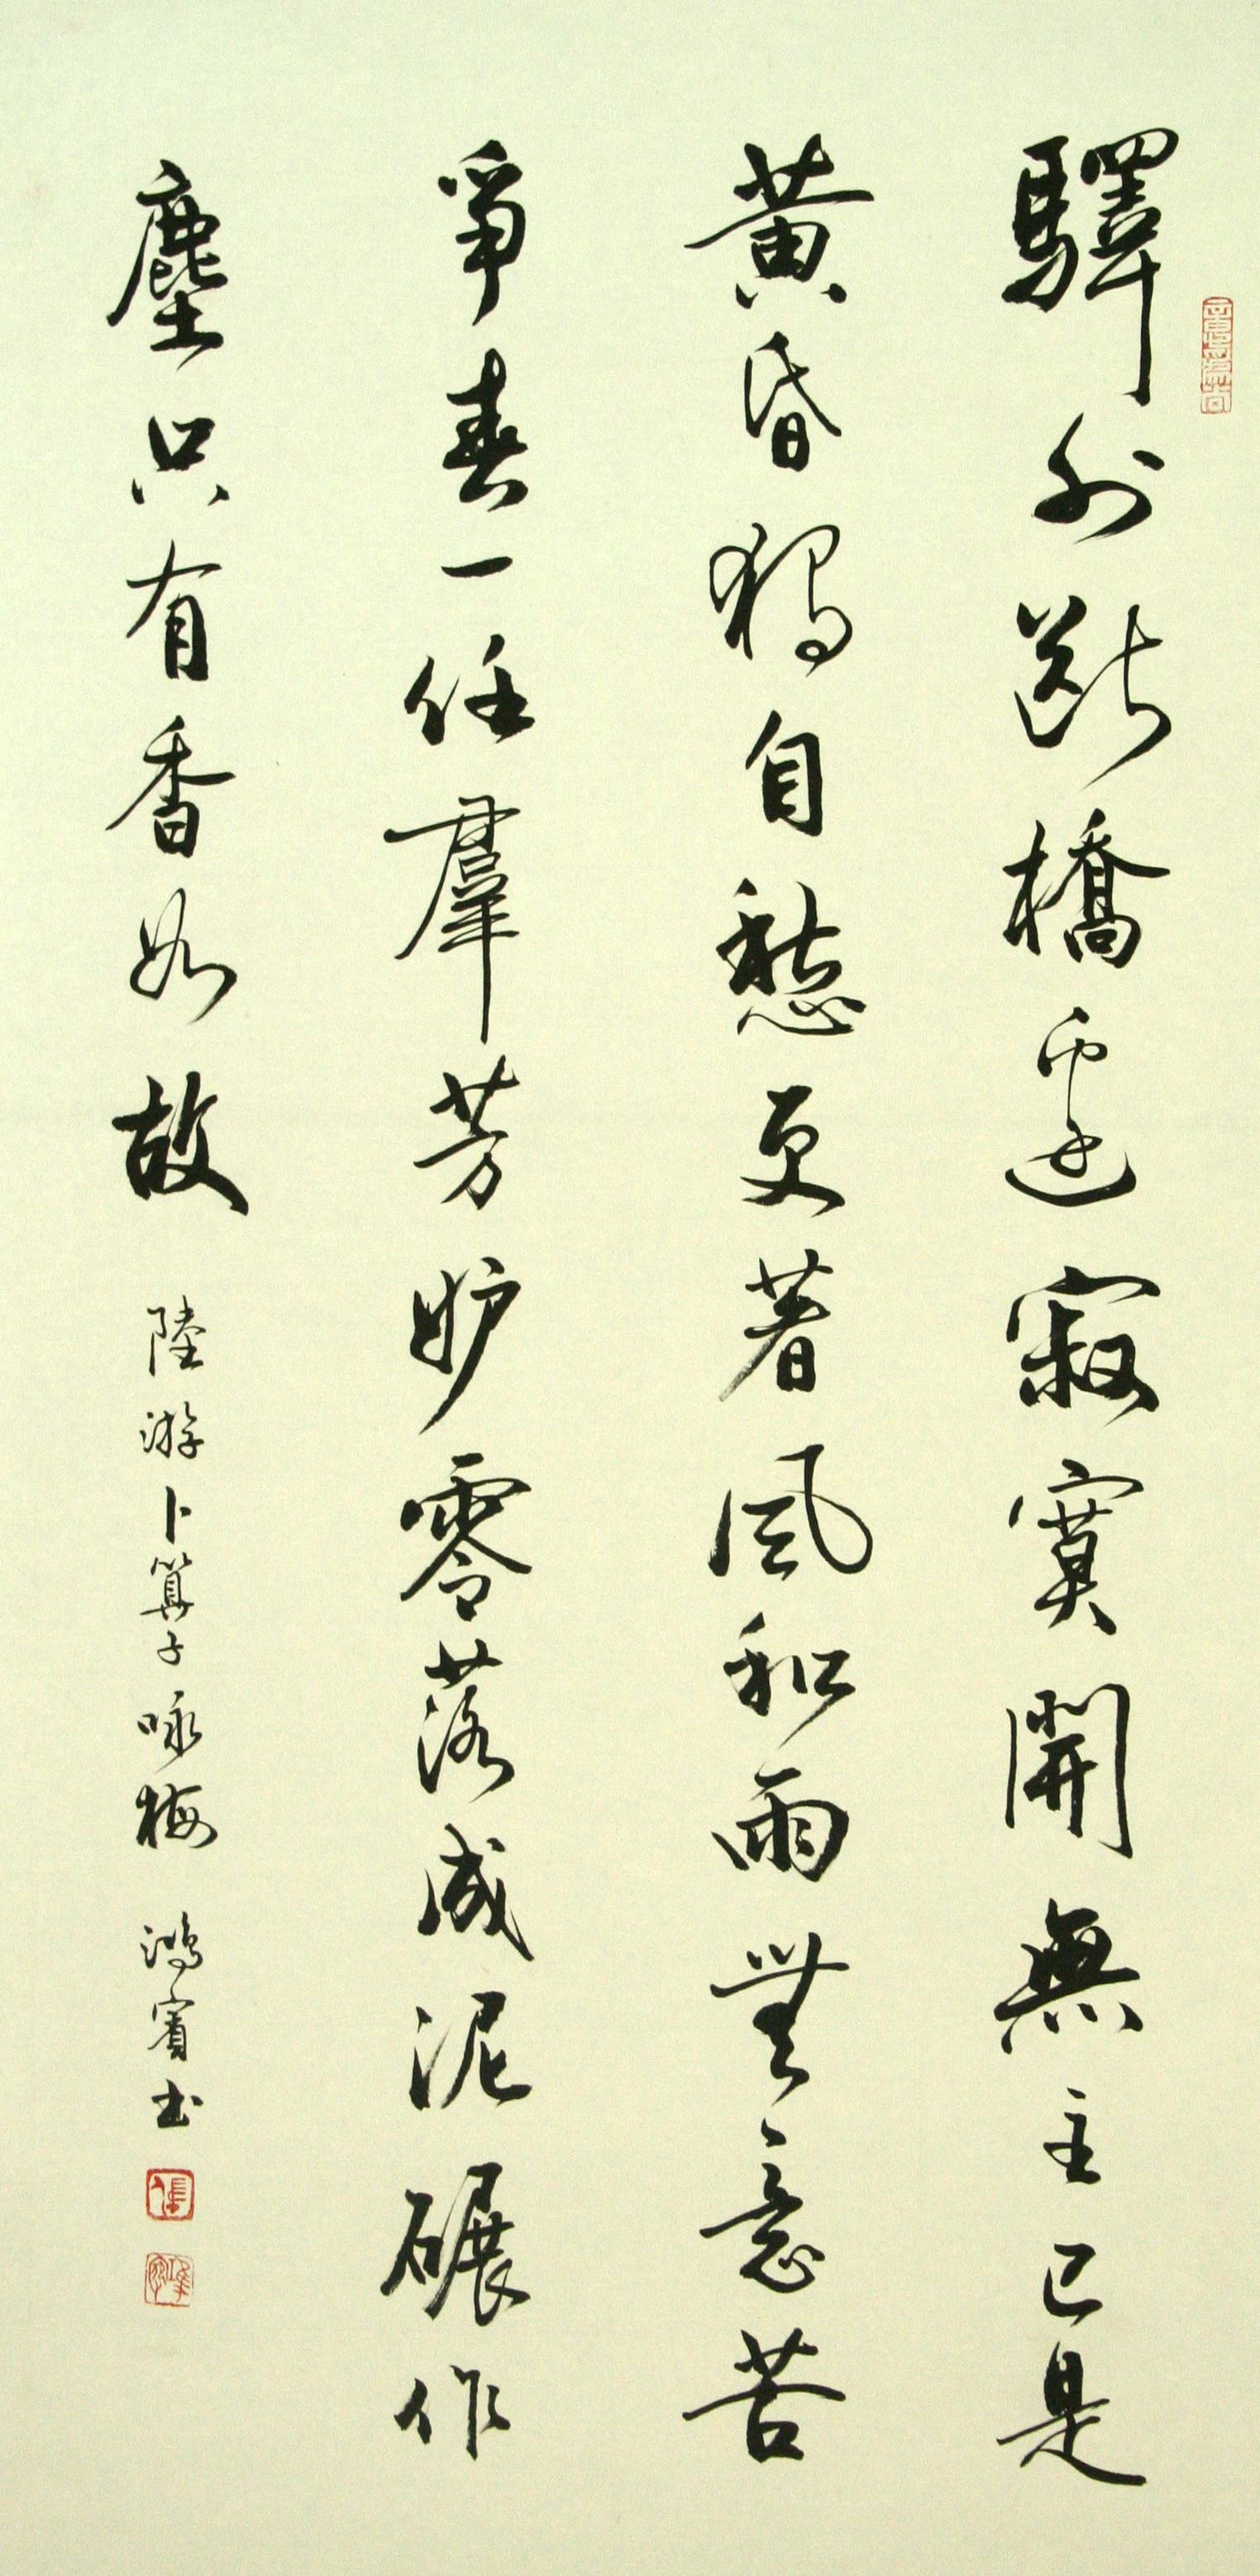 驛外斷橋邊寂寞開無主已是
黃昏獨自愁更著風和雨無意苦
爭春一任羣芳妒零落成泥碾作
塵只有香如故
陸游卜算子咏梅 鴻賓书